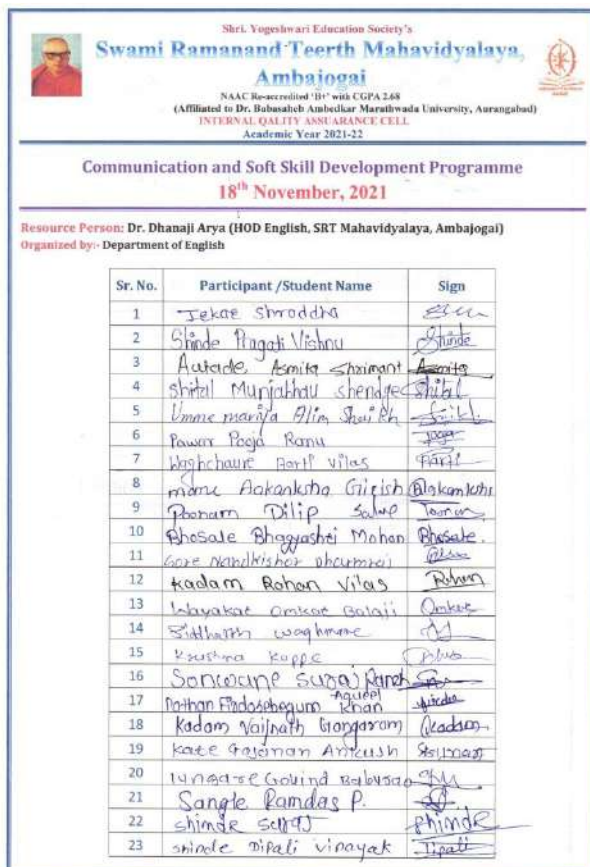 Shri. Yogeshwari Education Society's
Swami Ramanand Teerth Mahavidyalaya,
Ambajogai
NAAC Re-accredited 'B+' with CGPA 2.68
(Affiliated to Dr. Babasaheb Ambedkar Marathwada University, Aurangabad)
INTERNAL QALITY ASSUARANCE CELL
Academic Year 2021-22
Communication and Soft Skill Development Programme
18th November, 2021
Resource Person: Dr. Dhanaji Arya (HOD English, SRT Mahavidyalaya, Ambajogai)
Organized by:- Department of English
Sr. No. Participant /Student Name Sign
1 Shroddha
2 Shinde Pragati Vishnu Shinde
3 Autade Asmita Shrimant Asmita
4 Shital Munjabhau Shendge Shital
5 Umme mariya Alim Shaikh
6 Pawar Pooja Ranu Pooja
7 Waghchaure Aarti Vilas Aarti
8 mane Aakanksha Girish Aakanksha
9 Poonam Dilip Poonam
10 Bhosale Bhagyashri Mohan Bhosale.
11 Gore Nandkishor Dhaumraj
12 Kadam Rohan Vilas Rohan
13 Wayakar Omkar Balaji Omkar
14 Siddharth waghmare
15 Krushna Kappe
16 Sonwane Suraj
17 Pathan Firdosebegum Aqueel Khan
18 Kadam Vaijnath Gangaram Kadam
19 Kate Gajanan Ankush
20 Govind Baburao
21 Sangle Ramdas P.
22 Shinde Suraj Shinde
23 Shinde Dipali Vinayak Dipali